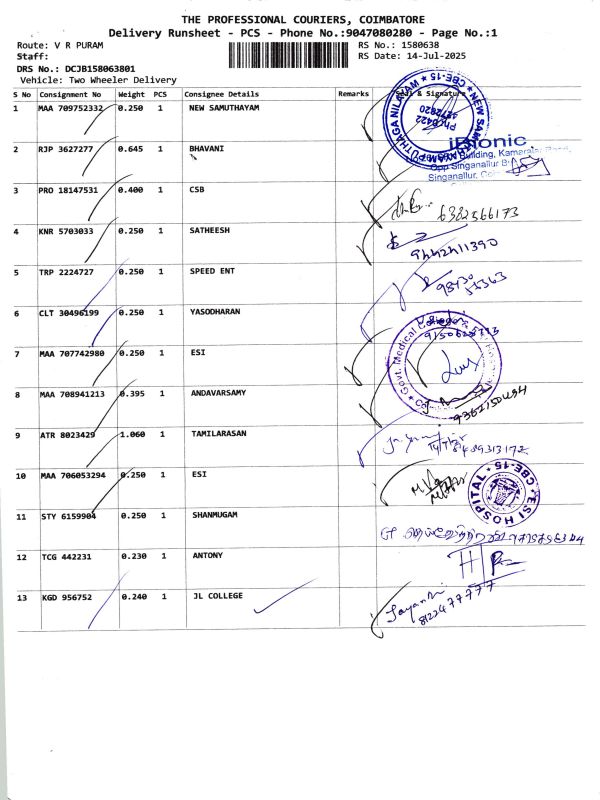 THE PROFESSIONAL COURIERS, COIMBATORE
Delivery Runsheet - PCS - Phone No.:9047080280 - Page No.:1
Route: V R PURAM RS No.: 1580638
Staff: RS Date: 14-Jul-2025
DRS No.: DCJB158063801
Vehicle: Two Wheeler Delivery
S No Consignment No Weight PCS Consignee Details Remarks & Signature
1 MAA 709752332 0.250 1 NEW SAMUTHAYAM
2 RJP 3627277 0.645 1 BHAVANI
Building, Kamarajar Road,
Opp Singanallur B
Singanallur,
3 PRO 18147531 0.400 1 CSB 6382566173
4 KNR 5703033 0.250 1 SATHEESH 9442411390
5 TRP 2224727 0.250 1 SPEED ENT
6 CLT 30496199 0.250 1 YASODHARAN
7 MAA 707742980 0.250 1 ESI
Govt. Medical
8 MAA 708941213 0.395 1 ANDAVARSAMY 9362150494
9 ATR 8023429 1.060 1 TAMILARASAN
10 MAA 706053294 0.250 1 ESI
ESI HOSPITAL * CBE-15 *
11 STY 6159904 0.250 1 SHANMUGAM
12 TCG 442231 0.230 1 ANTONY
13 KGD 956752 0.240 1 JL COLLEGE Jayanthi
8122477777